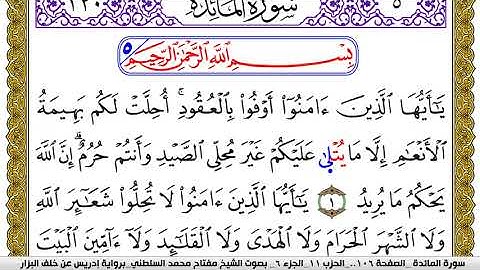 ١٢٠ سورة المائدة ٥
بِسْمِ اللَّهِ الرَّحْمَٰنِ الرَّحِيمِ ٥
يَٰٓأَيُّهَا الَّذِينَ ءَامَنُوٓا۟ أَوْفُوا۟ بِالْعُقُودِ ۚ أُحِلَّتْ لَكُم بَهِيمَةُ
الْأَنْعَٰمِ إِلَّا مَا يُتْلَىٰ عَلَيْكُمْ غَيْرَ مُحِلِّى الصَّيْدِ وَأَنتُمْ حُرُمٌ ۗ إِنَّ اللَّهَ
يَحْكُمُ مَا يُرِيدُ ١ يَٰٓأَيُّهَا الَّذِينَ ءَامَنُوا۟ لَا تُحِلُّوا۟ شَعَٰٓئِرَ اللَّهِ
وَلَا الشَّهْرَ الْحَرَامَ وَلَا الْهَدْىَ وَلَا الْقَلَٰٓئِدَ وَلَآ ءَآمِّينَ الْبَيْتَ
سورة المائدة_الصفحة ١٠٦...الحزب ١١_الجزء ٦_ بصوت الشيخ مفتاح محمد السلطني_برواية إدريس عن خلف البزار